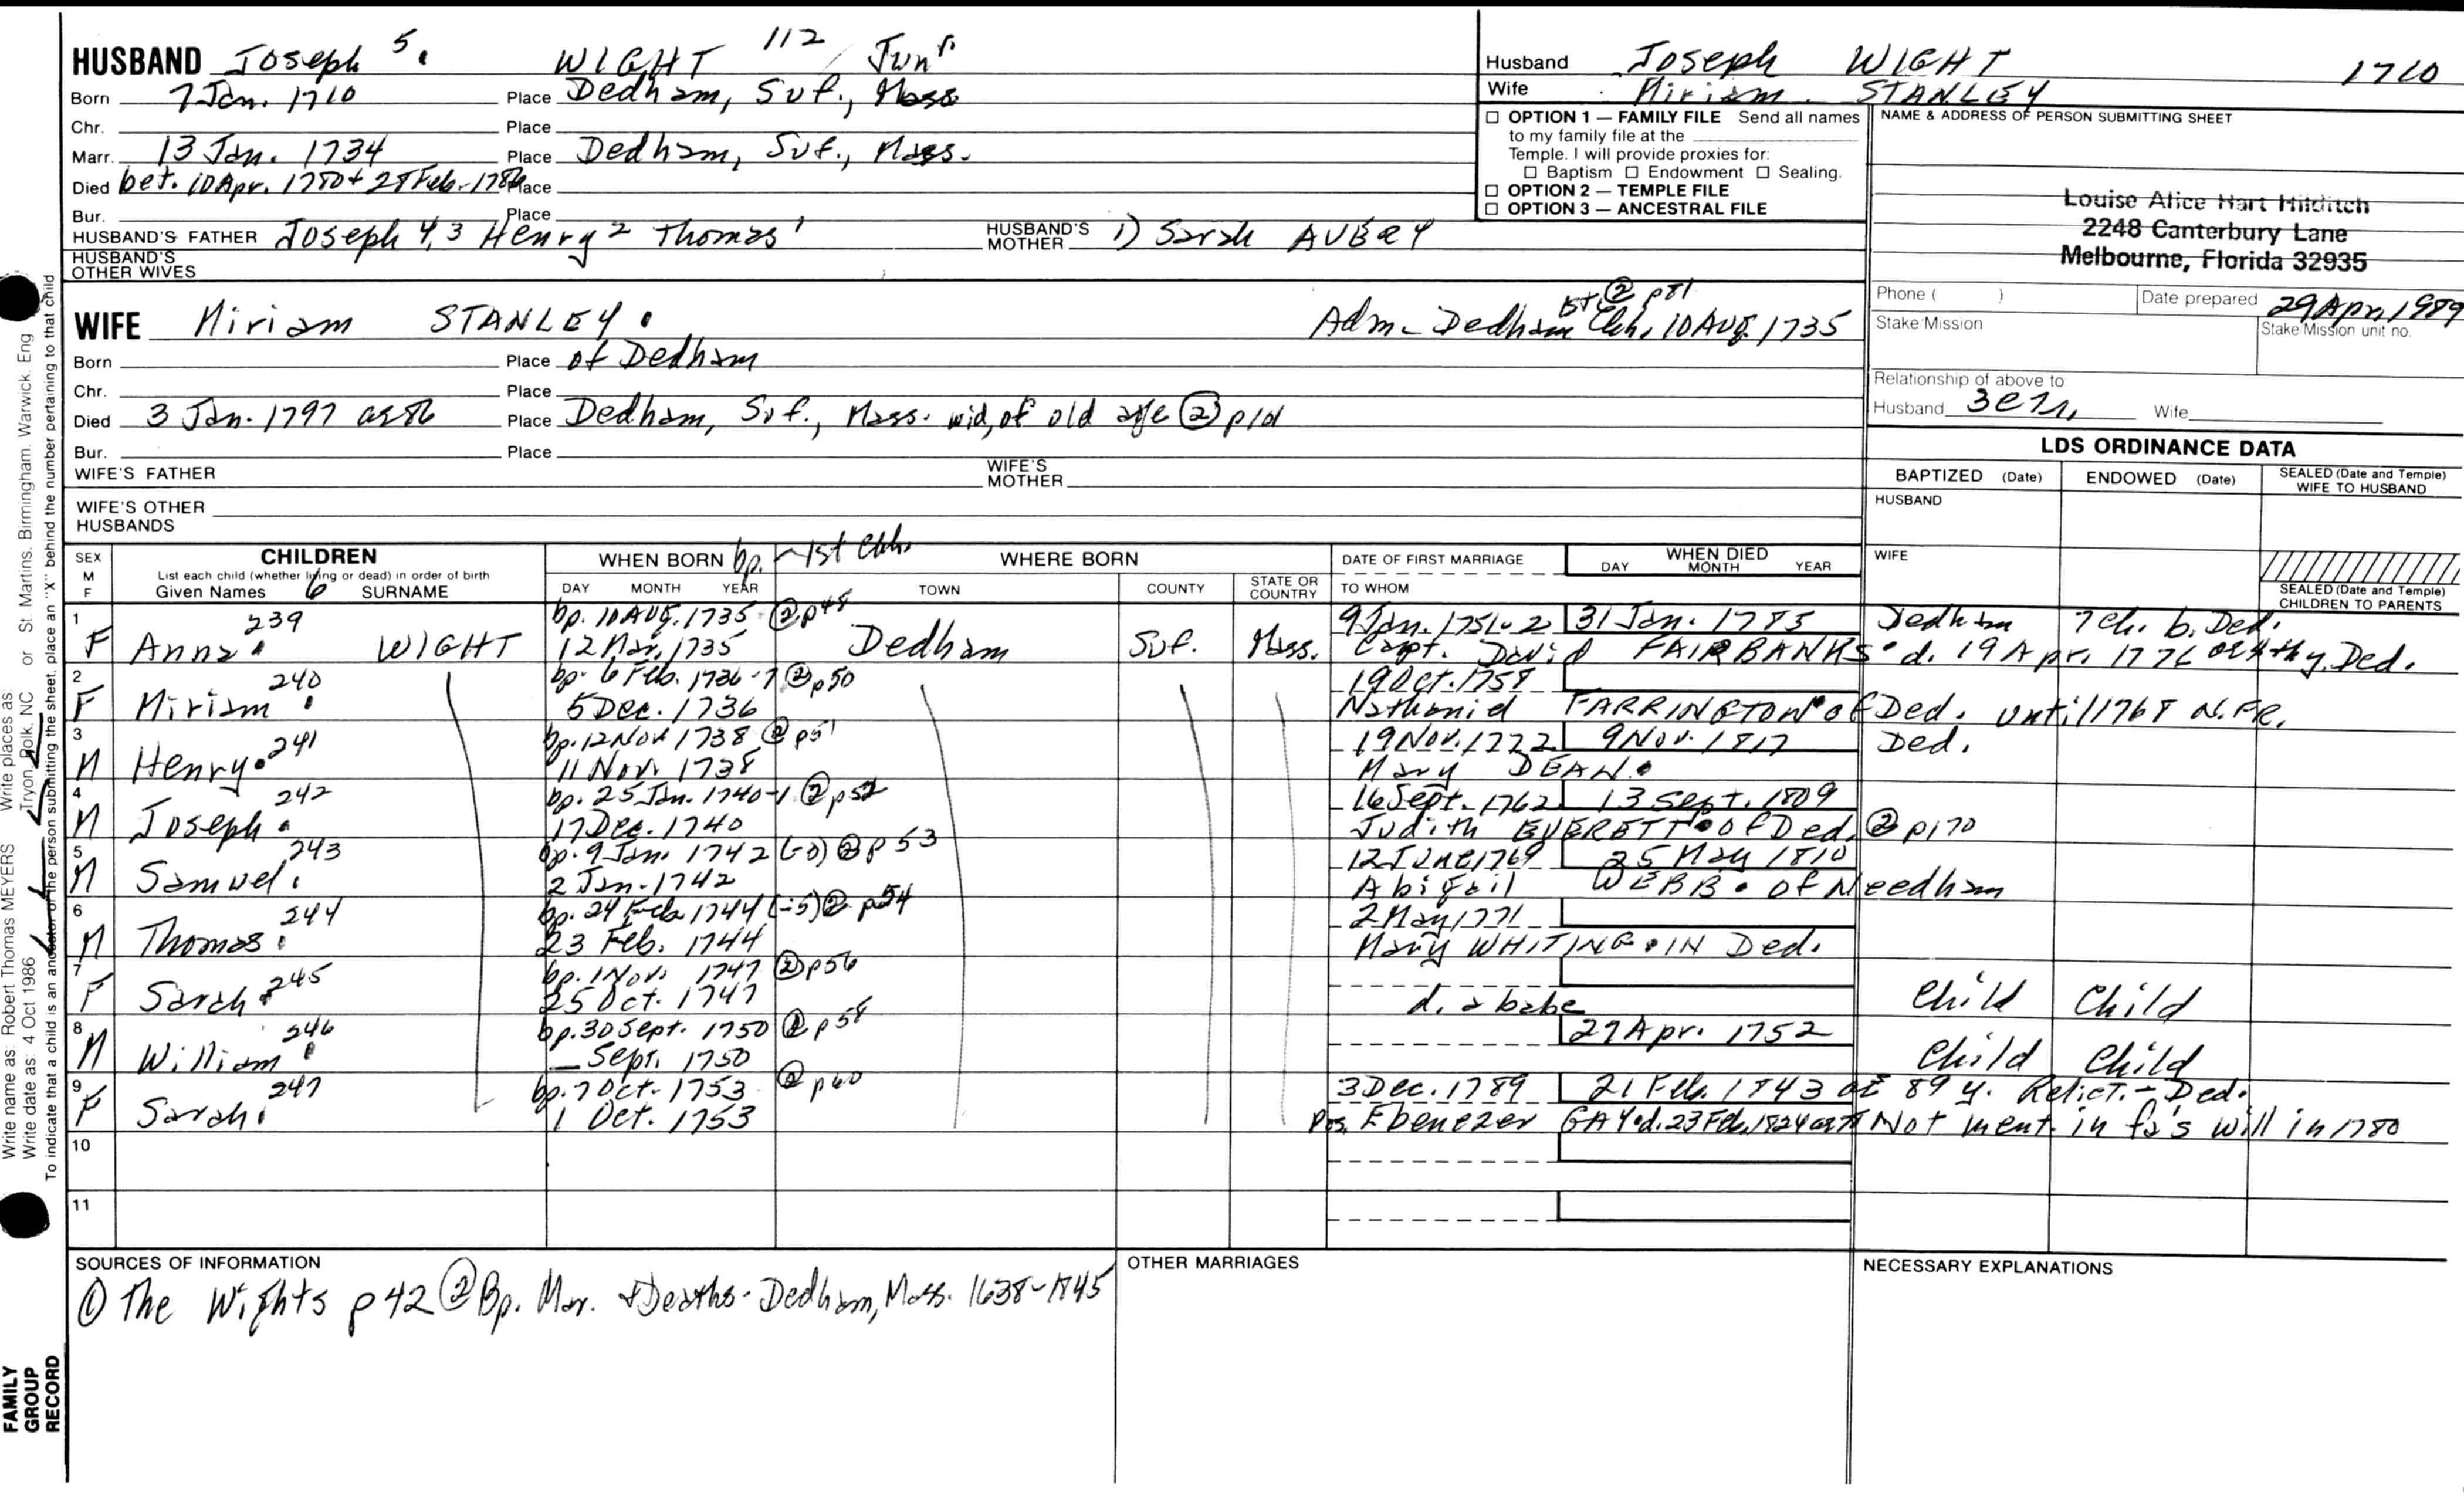 HUSBAND Joseph 5. WIGHT 112 Junr.
Born 7 Jan. 1710 Place Dedham, Suf., Mass
Chr. Place
Marr. 13 Jan. 1734 Place Dedham, Suf., Mass.
Died bet. 10 Apr. 1780 + 28 Feb. 1786 Place
Bur. Place
HUSBAND'S FATHER Joseph 4,3 Henry 2 Thomas 1 HUSBAND'S MOTHER 1) Sarah AUBRY
HUSBAND'S OTHER WIVES
WIFE Miriam STANLEY. Adm. Dedham 1st Chh. 10 AUG. 1735 ② p81
Born Place of Dedham
Chr. Place
Died 3 Jan. 1797 ae 86 Place Dedham, Suf., Mass. wid, of old age ②
Bur. Place
WIFE'S FATHER WIFE'S MOTHER
WIFE'S OTHER HUSBANDS
Husband Joseph WIGHT 1710
Wife Miriam STANLEY
☐ OPTION 1 — FAMILY FILE Send all names
to my family file at the
Temple. I will provide proxies for:
☐ Baptism ☐ Endowment ☐ Sealing.
☐ OPTION 2 — TEMPLE FILE
☐ OPTION 3 — ANCESTRAL FILE
NAME & ADDRESS OF PERSON SUBMITTING SHEET
Louise Alice Hart Hilditch
2248 Canterbury Lane
Melbourne, Florida 32935
Phone ( ) Date prepared 29 Apr. 1989
Stake/Mission Stake/Mission unit no.
Relationship of above to:
Husband Wife
LDS ORDINANCE DATA
BAPTIZED (Date) ENDOWED (Date) SEALED (Date and Temple) WIFE TO HUSBAND
HUSBAND
WIFE
SEALED (Date and Temple) CHILDREN TO PARENTS
SEX M F
CHILDREN
List each child (whether living or dead) in order of birth
Given Names 6 SURNAME
WHEN BORN bp. - 1st Chh.
DAY MONTH YEAR
WHERE BORN
TOWN COUNTY STATE OR COUNTRY
DATE OF FIRST MARRIAGE
TO WHOM
WHEN DIED
DAY MONTH YEAR
1 239 bp. 10 AUG. 1735 ② p48 9 Jan. 1751-2 31 Jan. 1785 Dedham 7 ch. b. Ded.
F Anna. WIGHT 12 Mar. 1735 Dedham Suf. Mass. Capt. David FAIRBANKS. d. 19 Apr. 1776 Ded.
2 240 bp. 6 Feb. 1736-7 ② p50 19 Oct. 1758
F Miriam. 5 Dec. 1736 Nathaniel FARRINGTON of Ded. until 1768 N.FR.
3 241 bp. 12 Nov 1738 ② p51 19 Nov. 1772 9 Nov. 1817 Ded.
M Henry. 11 Nov. 1738 Mary DEAN.
4 242 bp. 25 Jan. 1740-1 ② p52 16 Sept. 1762 13 Sept. 1809
M Joseph. 17 Dec. 1740 Judith EVERETT. of Ded. ② p170
5 243 bp. 9 Jan. 1742 ② p53 12 June 1769 25 May 1810
M Samuel. 2 Jan. 1742 Abigail WEBB. of Needham
6 244 bp. 24 Feb. 1744 (-5) ② p54 2 May 1771
M Thomas. 23 Feb. 1744 Mary WHITING. IN Ded.
7 245 bp. 1 Nov. 1747 ② p56
F Sarah. 25 Oct. 1747 d. a babe Child Child
8 246 bp. 30 Sept. 1750 ② p58 27 Apr. 1752
M William. _ Sept. 1750 Child Child
9 247 bp. 7 Oct. 1753 ② p60 3 Dec. 1789 21 Feb. 1843 ae 89 y. Relict. - Ded.
F Sarah. 1 Oct. 1753 Pos. Ebenezer GAY. d. 23 Feb. 1824 Not ment. in fa's will in 1780
10
11
SOURCES OF INFORMATION
① The Wights p 42 ② Bp. Mar. & Deaths - Dedham, Mass. 1638-1845
OTHER MARRIAGES
NECESSARY EXPLANATIONS
Write name as: Robert Thomas MEYERS Write places as
Write date as: 4 Oct 1986 Tryon, Polk, NC or St. Martins, Birmingham, Warwick, Eng
To indicate that a child is an ancestor of the person submitting the sheet, place an "X" behind the number pertaining to that child
FAMILY
GROUP
RECORD